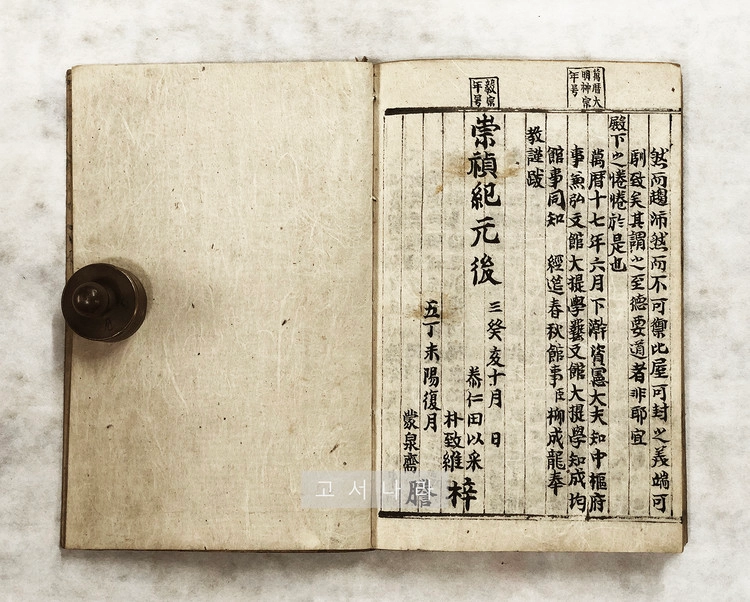 萬曆大
明神宗
年号
毅宗
年号
然而趨沛然而不可禦比屋可封之義端可
馴致矣其謂之至德要道者非耶宜
殿下之惓惓於是也
萬曆十七年六月下澣資憲大夫知中樞府
事兼弘文館大提學藝文館大提學知成均
館事同知 經筵春秋館事臣柳成龍奉
教謹跋
崇禎紀元後
三癸亥十月 日
泰仁田以采
朴致維
梓
五丁未陽復月
蒙泉齋
고서나라